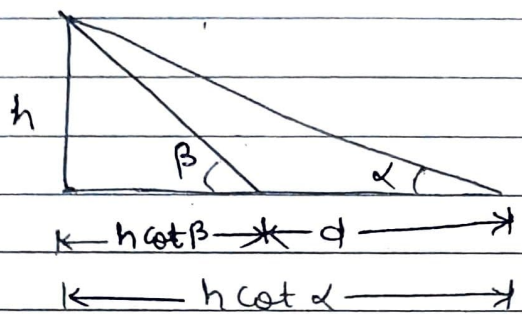 h
β
α
h cot β
d
h cot α